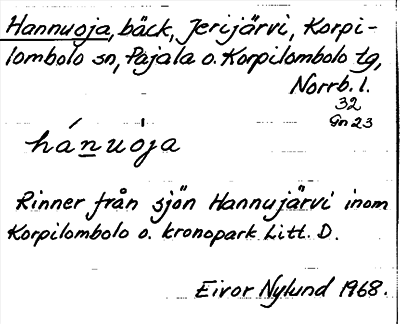 Hannuoja, bäck, Jerijärvi, Korpi-
lombolo sn, Pajala o. Korpilombolo tg,
Norrb. l.
32
Gn 23
hánuòja
Rinner från sjön Hannujärvi inom
Korpilombolo o. kronopark Litt. D.
Eivor Nylund 1968.